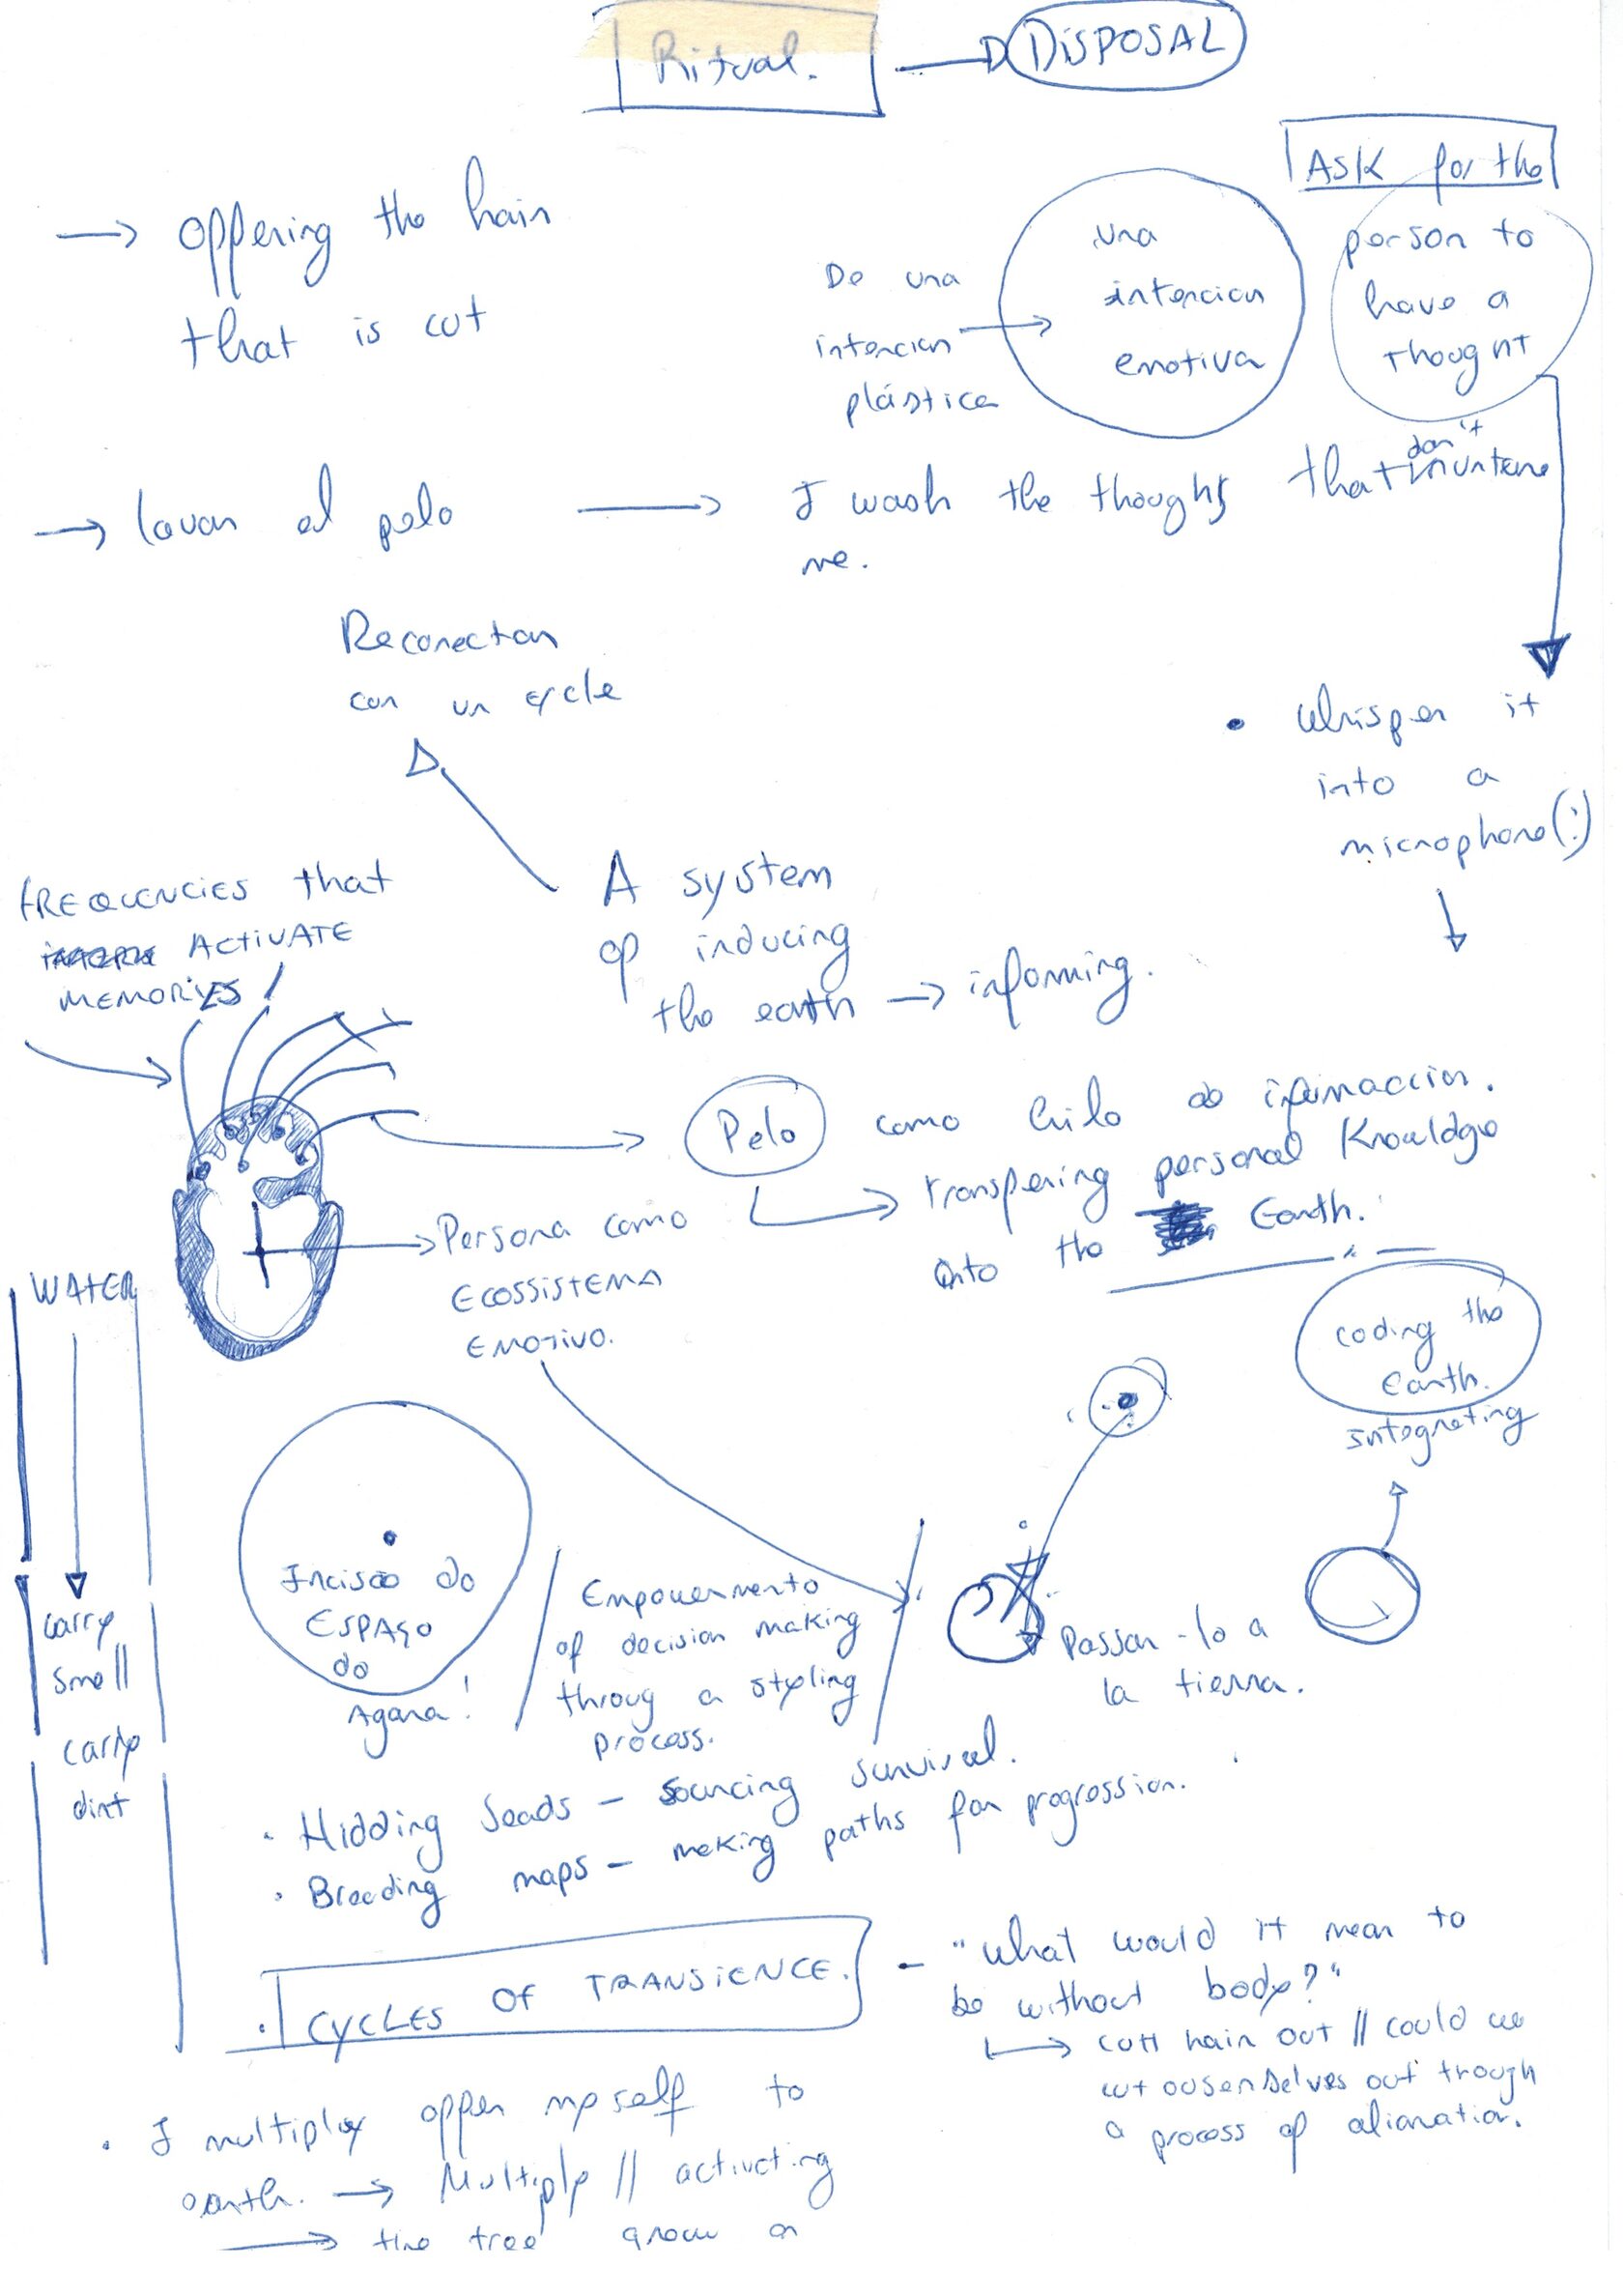 Ritual.
DISPOSAL
Ask for the
person to
have a
thought
offering the hair
that is cut
De una
intencion
plástica
una
intencion
emotiva
lavar el pelo
I wash the thoughts that don't
me.
Reconectar
con un cycle
whisper it
into a
microphone (:)
A system
of inducing
the earth → informing.
fREQUENCIES that
ACTIVATE
MEMORIES
Pelo como hilo de ifirmaccion.
transfering personal Knowldge
onto the Earth.
Persona como
ECOSSISTEMA
EMOTIVO.
WATER
carry
smell
carry
dirt
coding the
Earth.
integrating
Incisão do
ESPAÇO
do
Agora!
Empowermento
of decision making
throug a styling
process.
Passar-lo a
la tierra.
. Hidding Seads – sourcing survival.
. Breading maps – making paths for progression.
. CYCLES OF TRANSIENCE. – "what would it mean to
be without body?"
cutt hair out // could we
cut ousenselves out trough
a process of alienation.
. I multiply offer myself to
earth. → Multiply // activating
→ the tree grow